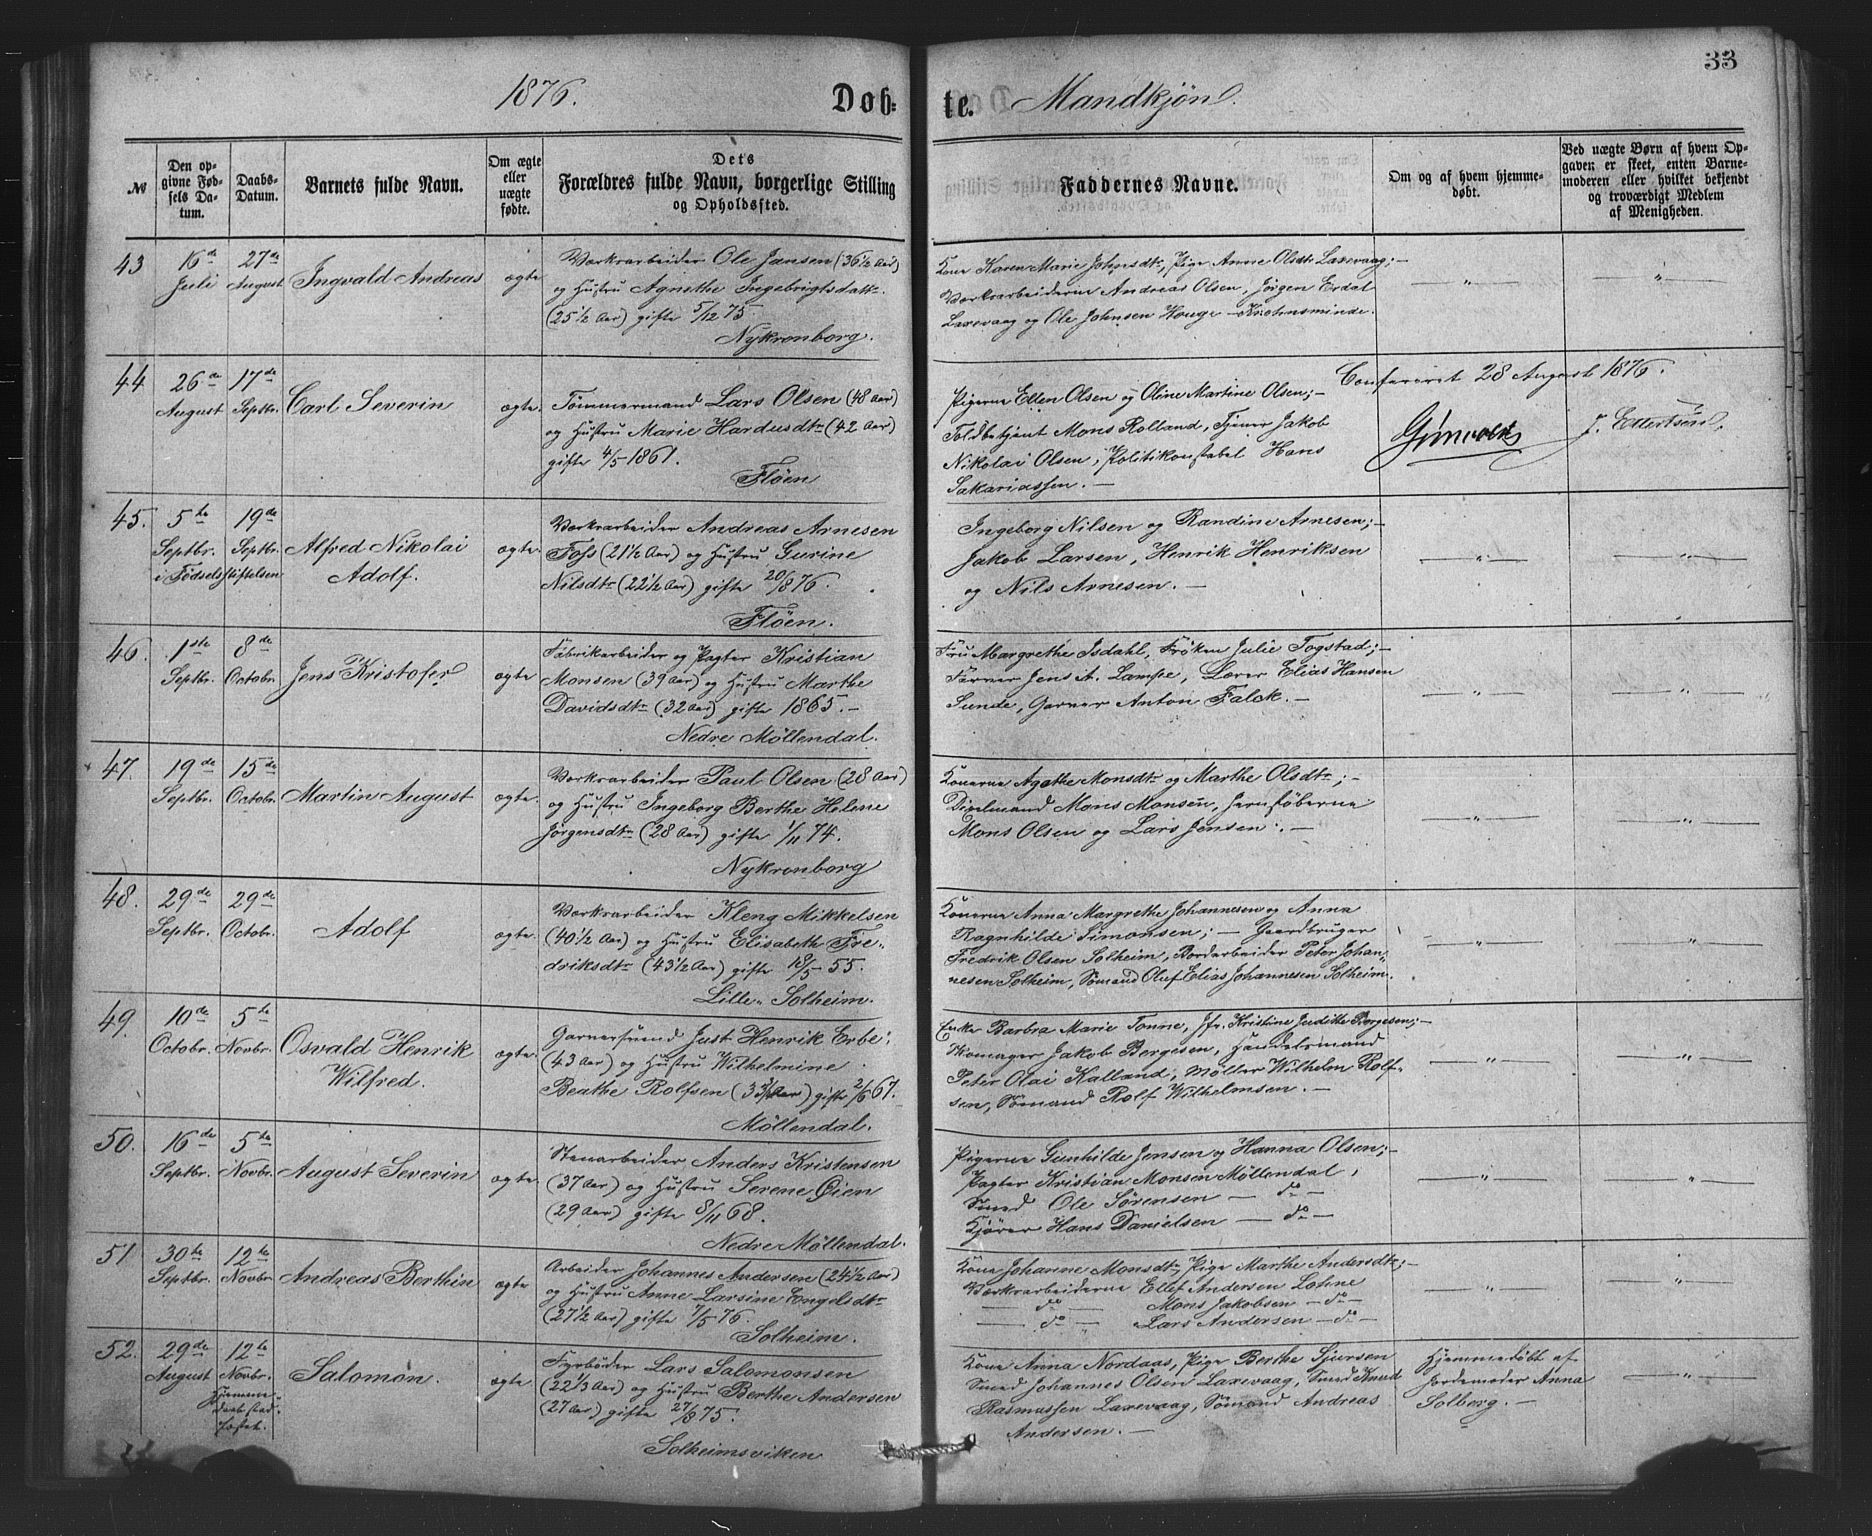 33
1876. Døb= te. Mandkjøn.
№
Den opgivne Fødsels Datum.
Daabs-Datum.
Barnets fulde Navn.
Om ægte eller uægte fødte.
Dets Forældres fulde Navn, borgerlige Stilling og Opholdssted.
Faddernes Navne.
Om og af hvem hjemmedøbt.
Ved uægte Børn af hvem Opgaven er skeet, enten Barnemoderen eller hvilket bekjendt og troværdigt Medlem af Menigheden.
43 16de Juli 27de August Ingvald Andreas ægte
Værkrarbeider Ole Jansen (36½ Aar)
og Hustru Agnethe Ingebrigtsdatt.
(25½ Aar) gifte 5/12 75.
Nykronborg.
Kone Karen Marie Johnsdtr, Pige Anne Olsdtr Laxevaag; –
Værkrarbeiderne Andreas Olsen, Jörgen Erdal
Laxevaag og Ole Johnsen Houge –
— " — — " —
44 26de August 17de Septbr. Carl Severin ægte.
Tömmermand Lars Olsen (48 Aar)
og Hustru Marie Hardusdtr (42 Aar)
gifte 4/5 1861.
Flöen
Confereret 28 August 1876.
Pigerne Ellen Olsen og Oline Martine Olsen; –
Toldbetjent Mons Rolland, Tjener Jakob
Nikolai Olsen, Politikonstabel Hans
Sakariassen. –
J. Ellertsen.
45. 5te Septbr. 19de Septbr. i Födselsstiftelsen Alfred Nikolai Adolf. ægte.
Værkrarbeider Andreas Arnesen
Foss (21½ Aar) og Hustru Gurine
Nilsdtr (22½ Aar) gifte 20/8 76.
Flöen.
Ingeborg Nilsen og Randine Arnesen; –
Jakob Larsen, Henrik Henriksen
og Nils Arnesen. –
— " — — " —
46. 1ste Septbr. 8de Octobr. Jens Kristofer ægte
Fabrikarbeider og Pagter Kristian
Monsen (39 Aar) og Hustru Marthe
Davidsdtr (32 Aar) gifte 1865. –
Nedre Möllendal.
Fru Margrethe Isdahl, Fröken Julie Fogstad; –
Farver Jens A. Lampe, Lærer Elias Hansen
Sunde, Garver Anton Falck. –
— " — — " —
47. 19de Septbr. 15de Octobr. Martin August ægte.
Værkrarbeider Paul Olsen (28 Aar)
og Hustru Ingeborg Berthe Helene
Jörgensdtr (28 Aar) gifte 1/11 74.
Nykronborg
Konerne Agathe Monsdtr og Marthe Olsdtr; –
Mons Monsen, Jernstöberne
Mons Olsen og Lars Jensen. –
— " — — " —
48. 29de Septbr. 29de Octobr. Adolf ægte.
Værkrarbeider Kleng Mikkelsen
(40½ Aar) og Hustru Elisabeth Fre-
driksdtr (43½ Aar) gifte 18/5 55.
Lille- Solheim.
Konerne Anna Margrethe Johannesen og Anna
Ragnhilde Simonsen; – Gaardbruger
Fredrik Olsen Solheim, Bordarbeider Peter Johan-
nesen Solheim, Sömand Oluf Tolias Johannesen Solheim.
— " — — " —
49. 10de Octobr. 5te Novbr. Osvald Henrik Wilfred. ægte.
Garversvend Just Henrik Erbe
(43 Aar) og Hustru Wilhelmine
Beathe Rolfsen (33½ Aar) gifte 2/6 67.
Möllendal.
Enke Barbra Marie Tonne, Jfr. Kristine Judithe Borgesen; –
Skomager Jakob Bergesen, Handelsmand
Peter Olai Kalland, Möller Wilhelm Rolf-
sen, Sömand Rolf Wilhelmsen. –
— " — — " —
50. 16de Septbr. 5te Novbr. August Severin ægte.
Stenarbeider Anders Kristensen
(37 Aar) og Hustru Serene Öien
(29 Aar) gifte 8/11 68.
Nedre Möllendal.
Pigerne Gunhilde Jensen og Hanna Olsen; –
Pagter Kristian Monsen Möllendal,
Smed Ole Sörensen – do –
Kjörer Hans Danielsen – do –
— " — — " —
51 30te Septbr. 12te Novbr Andreas Berthin ægte
Arbeider Johannes Andersen (24½ Aar)
og Hustru Anne Larsine Engelsdtr
(27½ Aar) gifte 7/5 76.
Solheim.
Kone Johanne Monsdtr, Pige Marthe Andersdtr; –
Værkrarbeiderne Ellef Andersen Lohne
— do — Mons Jakobsen – do –
— do — Lars Andersen – do –
— " — — " —
52. 29de August 12te Novbr. Hjemmedaab stadfæstet. Salomon. ægte.
Fyrböder Lars Salomonsen
(22⅓ Aar) og Hustru Berthe Andersen
(27 Aar) gifte 27/8 75.
Solheimsviken
Kone Anna Nordaas, Pige Berthe Sjursen
Smed Johannes Olsen Laxevaag, Smed Knud
Rasmussen Laxevaag, Sömand Andreas
Andersen. –
Hjemmedöbt af
Jordemoder Anna
Solberg. –
— " —